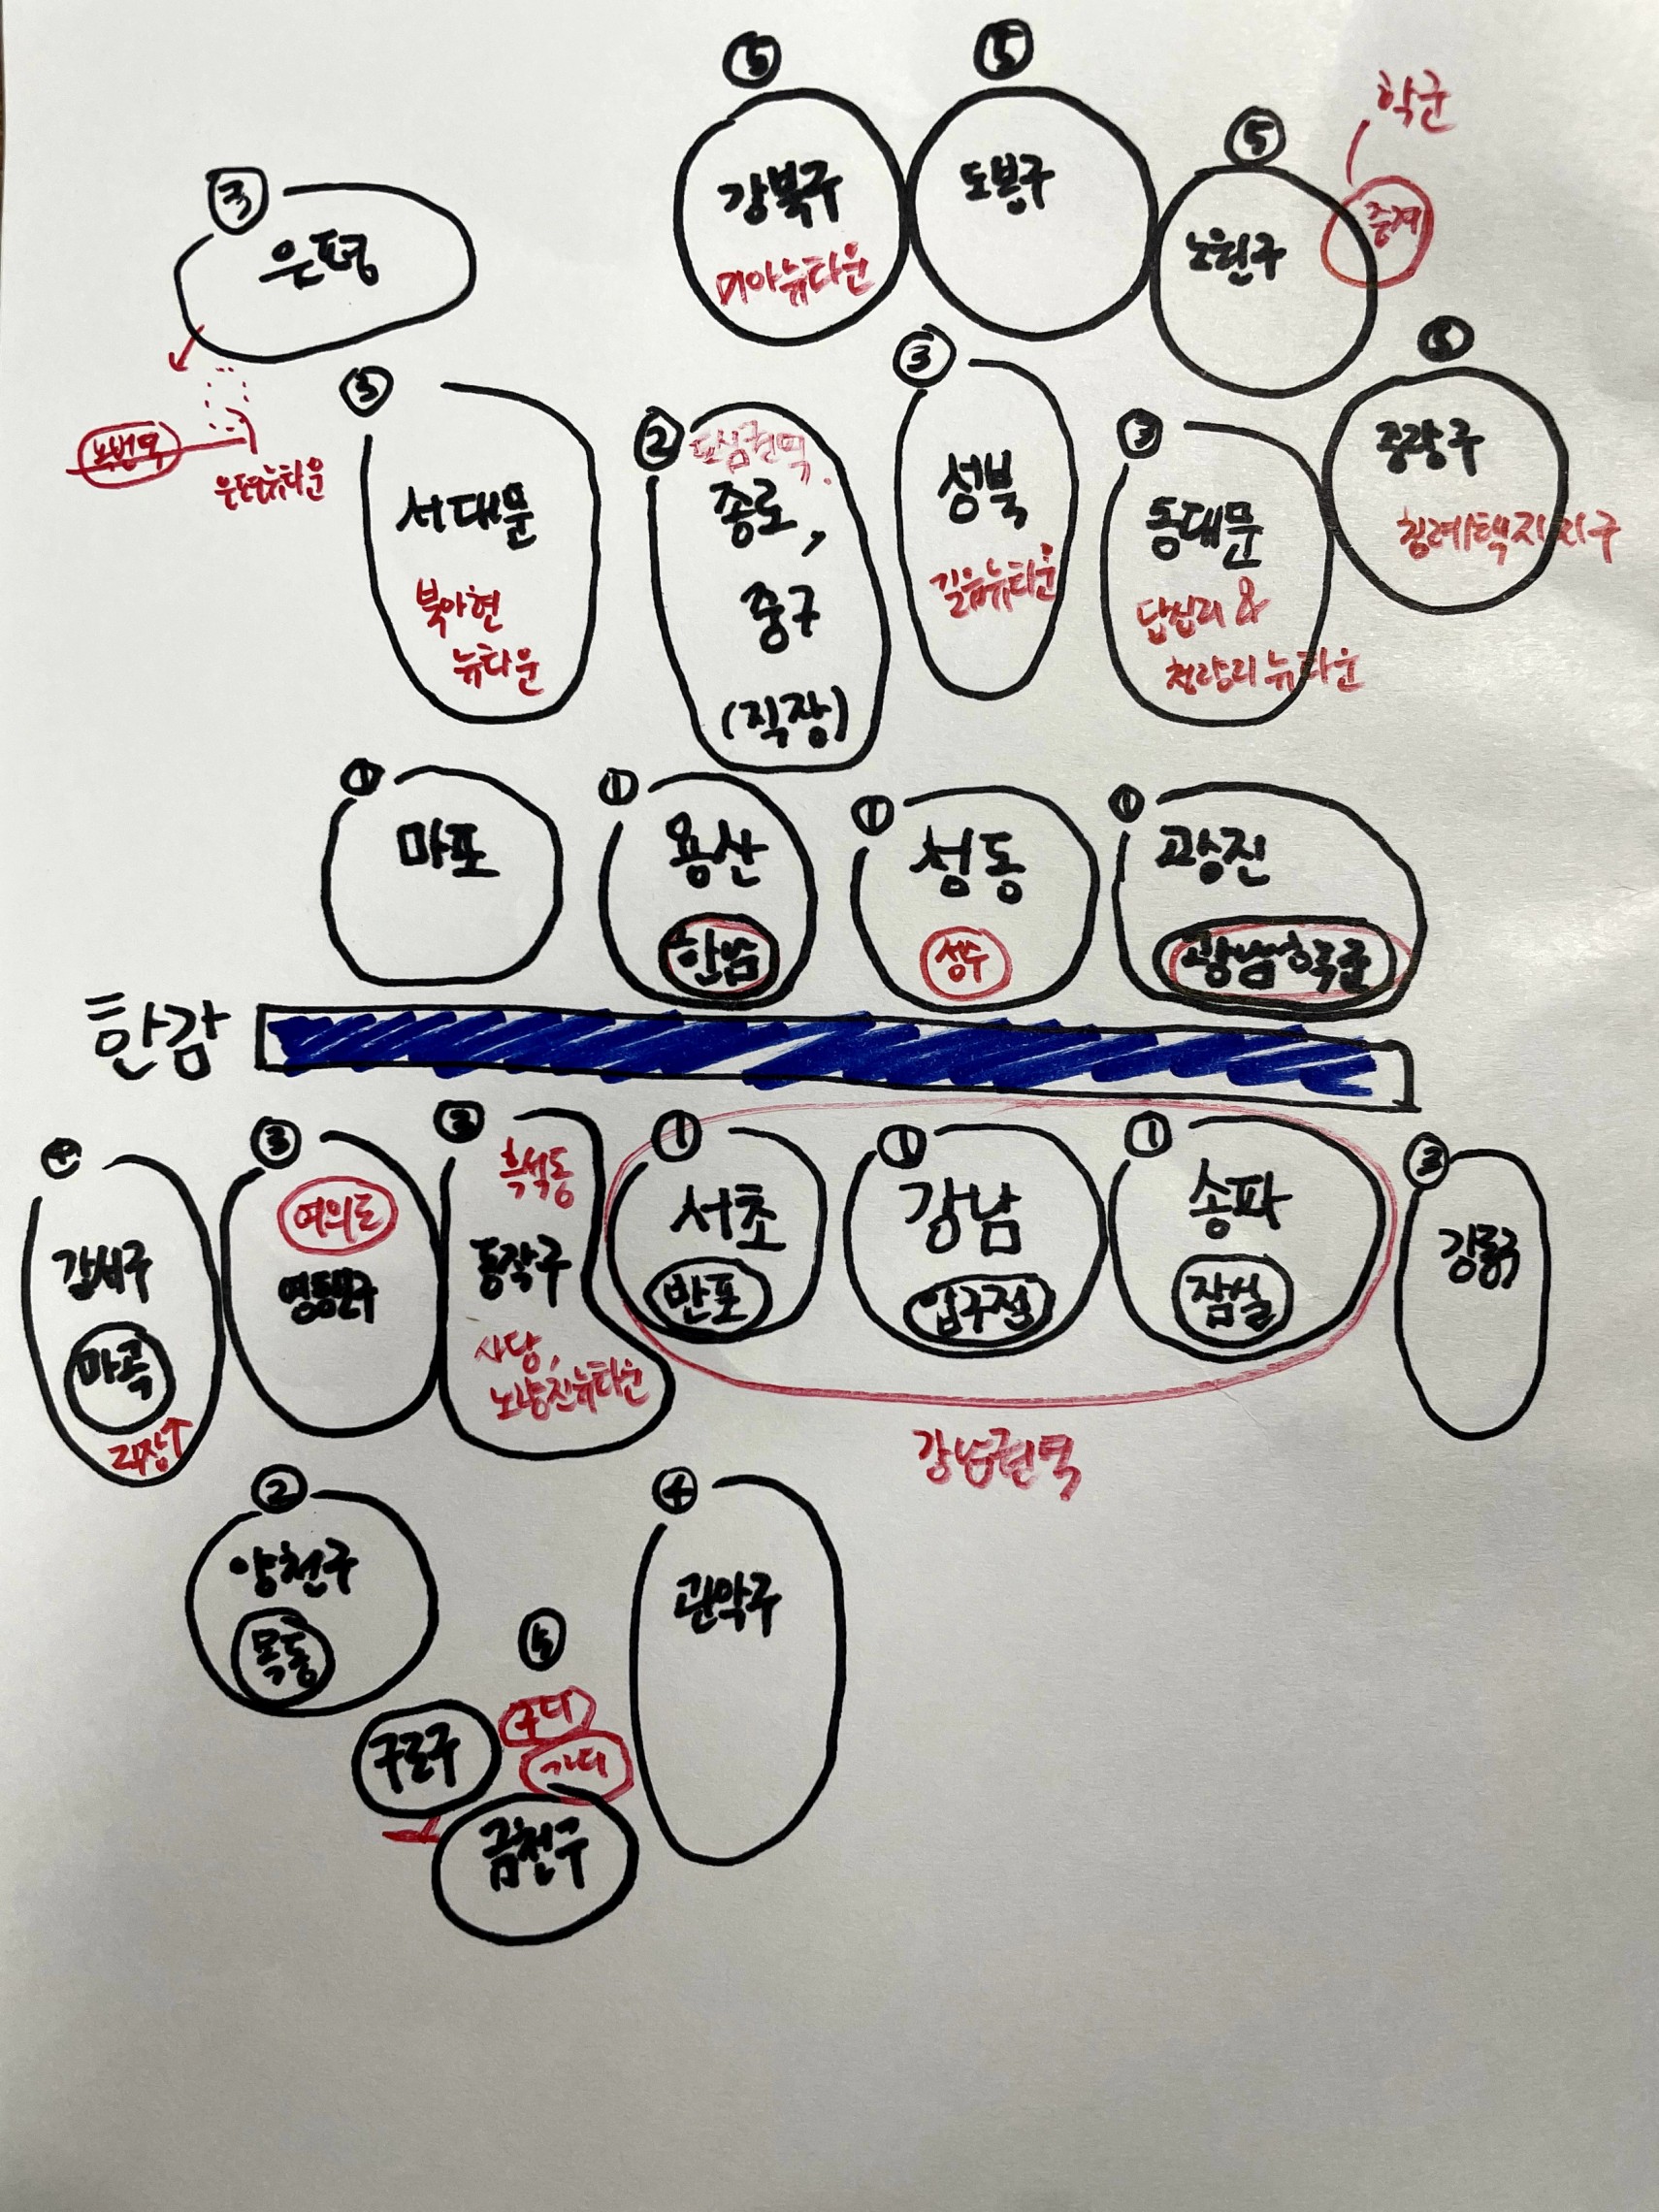 ⑤
⑤
⑤
학군
강북구
미아뉴타운
도봉구
노원구
중계
③
은평
녹번역
은평뉴타운
③
서대문
북아현
뉴타운
②
도심권역
종로,
중구
(직장)
③
성북
길음뉴타운
③
동대문
답십리 &
청량리뉴타운
⑤
중랑구
①
마포
①
용산
한남
①
성동
성수
①
광진
광남학군
한강
④
강서구
마곡
③
여의도
영등포구
③
흑석동
동작구
사당,
노량진뉴타운
①
서초
반포
①
강남
압구정
①
송파
잠실
강남권역
③
강동구
②
양천구
목동
⑤
구로구
구디
가디
금천구
④
관악구